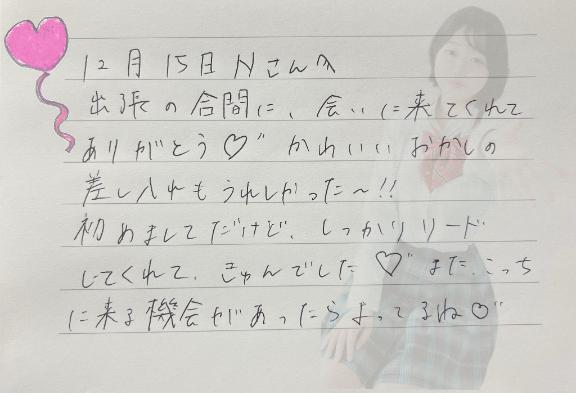 12月15日Nさんへ
出張の合間に、会いに来てくれて
ありがとう♡" かわいいおかしの
差し入れもうれしかった〜!!
初めましてだけど、しっかりリード
してくれて、きゅんでした♡" また、こっち
に来る機会があったらまってるね♡"